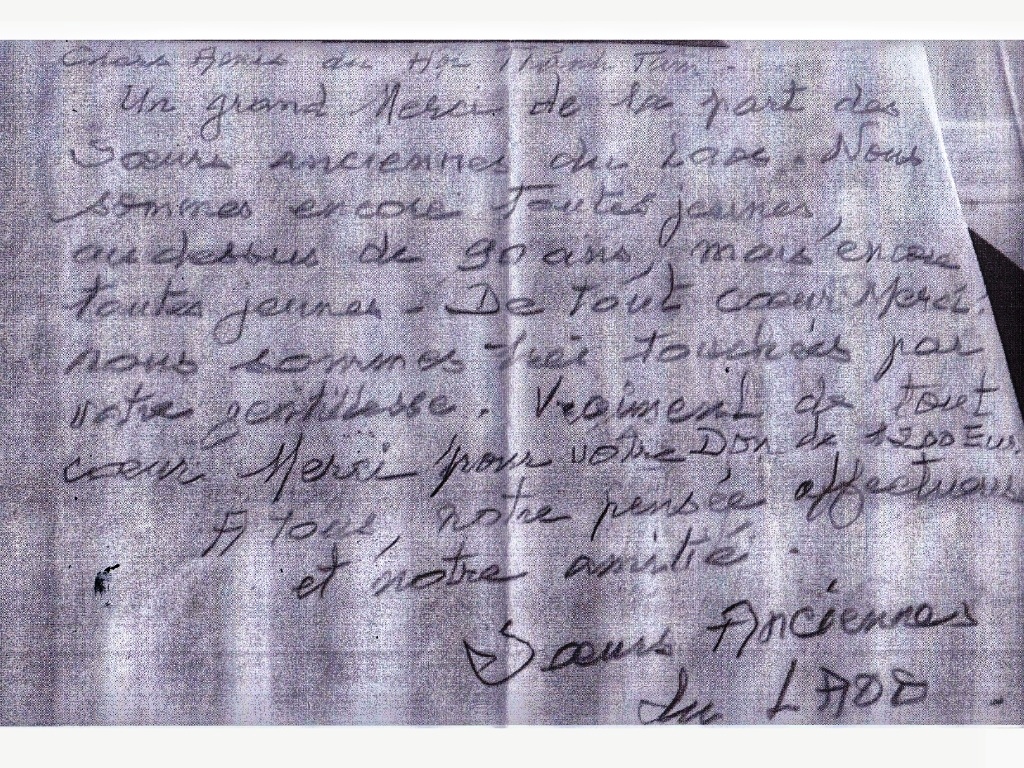 Chers Amis du Hội Thánh Tâm.
Un grand Merci de la part des
Sœurs anciennes du Laos. Nous
sommes encore toutes jeunes,
au dessus de 90 ans, mais encore
toutes jeunes - De tout cœur Merci.
nous sommes très touchées par
votre gentillesse. Vraiment de tout
cœur Merci pour votre Don de 1200 Eur.
A tous, notre pensée affectueuse
et notre amitié.
Sœurs Anciennes
du LAOS.